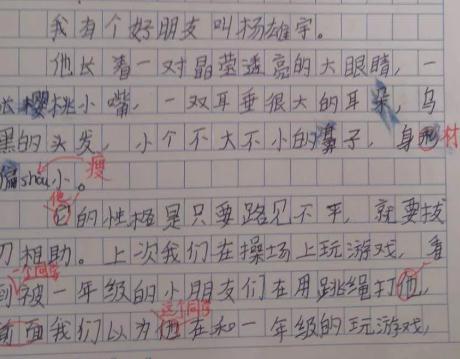 我有个好朋友叫杨雄宇。
他长着一对晶莹透亮的大眼睛，一
张樱桃小嘴，一双耳垂很大的耳朵，乌
黑的头发，小个不大不小的鼻子，身形材
偏shou小。瘦
他
它的性格是只要路见不平，就要拔
刀相助。上次我们在操场上玩游戏，看
一个同学
到被一年级的小朋友们在用跳绳打他，
这个同学
前面我们以为他在和一年级的玩游戏，